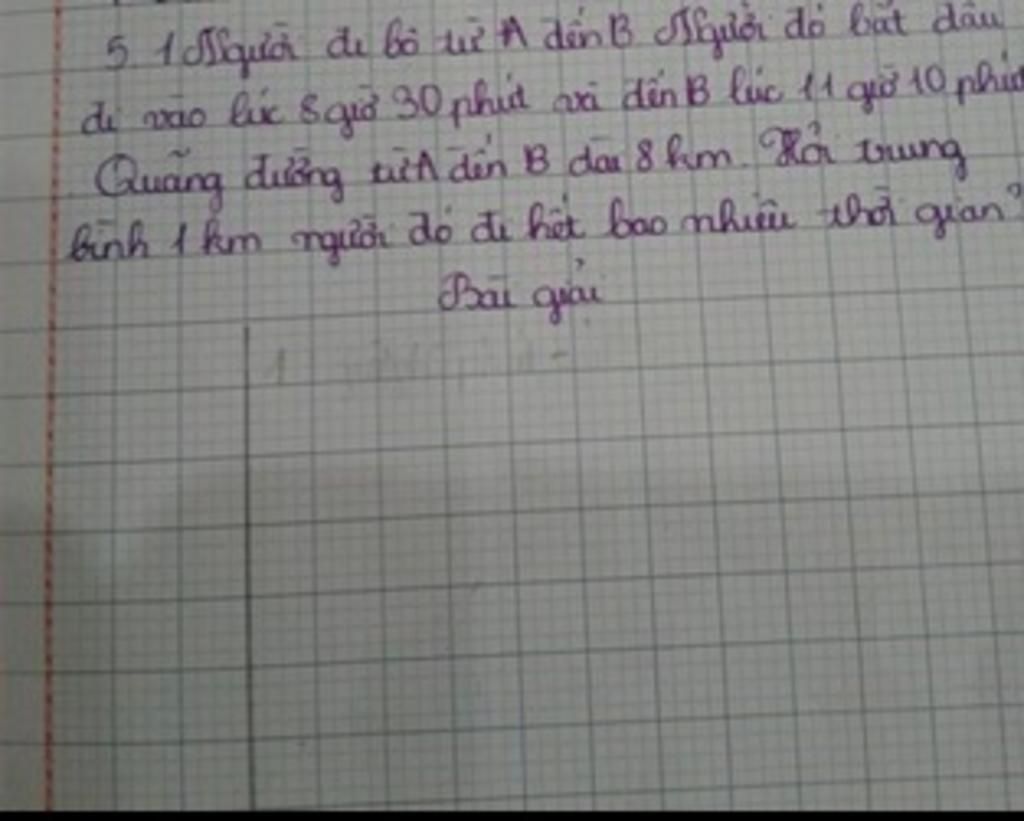 5 1 Người đi bộ từ A đến B Người đó bắt đầu
đi vào lúc 8 giờ 30 phút và đến B lúc 11 giờ 10 phút
Quãng đường từ A đến B dài 8 km. Hỏi trung
bình 1 km người đó đi hết bao nhiêu thời gian?
Bài giải